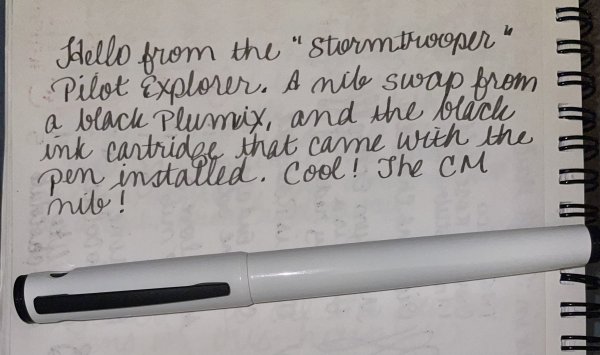 Hello from the "Stormtrooper"
Pilot Explorer. A nib swap from
a black Plumix, and the black
ink cartridge that came with the
pen installed. Cool! The CM
nib!